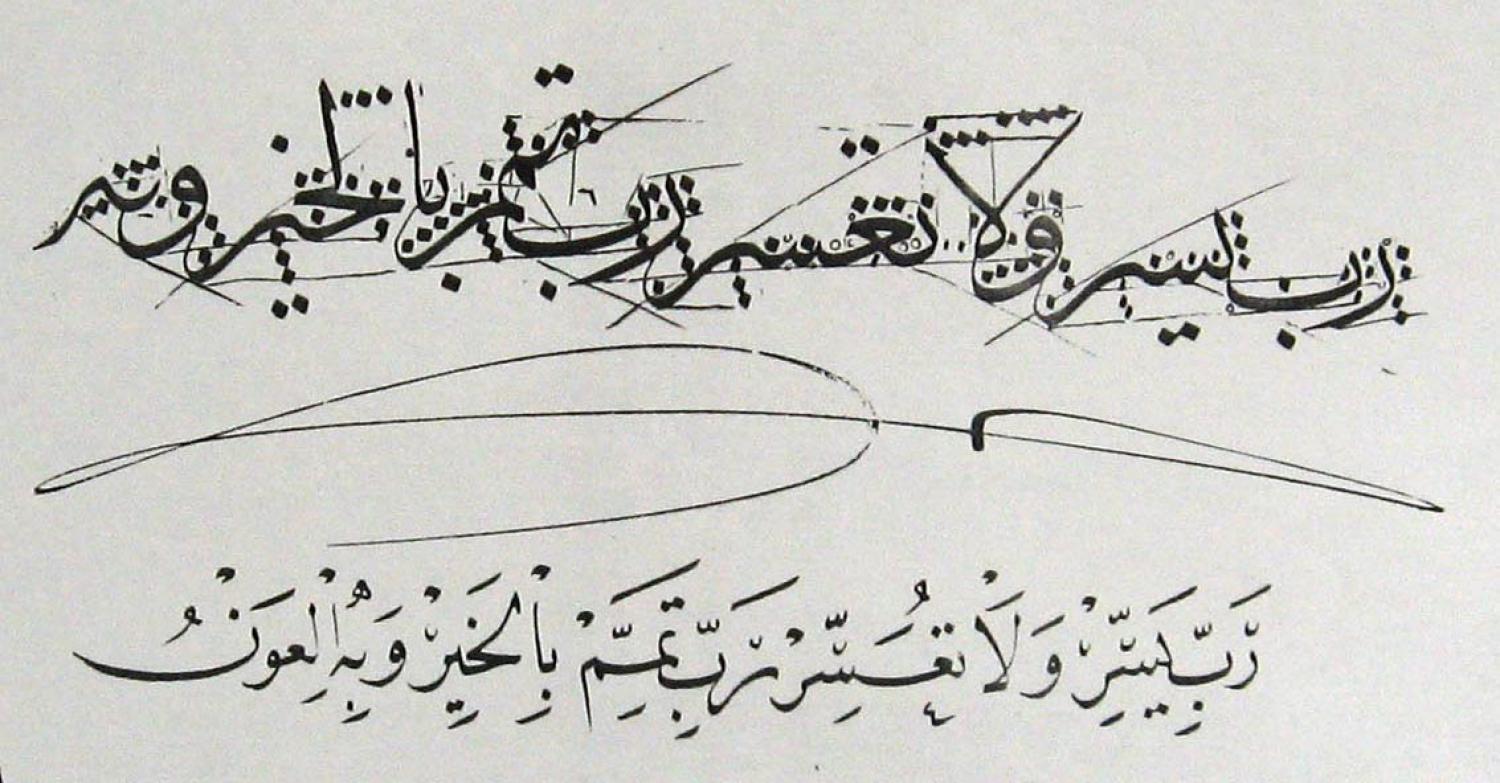 رب يسر ولا تعسر رب تمم بالخير وبه
رَبِّ يَسِّرْ وَلَا تُعَسِّرْ رَبِّ تَمِّمْ بِالْخَيْرْ وَبِهِ الْعَوْنُ